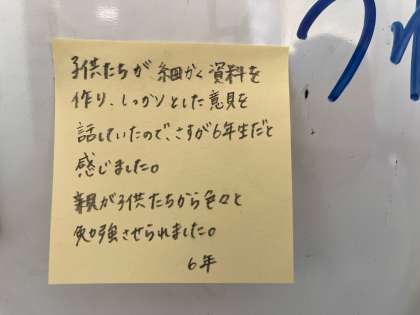 子供たちが 細かく資料を
作り、しっかりとした意見を
話していたので、さすが6年生だと
感じました。
親が子供たちから色々と
勉強させられました。
6年